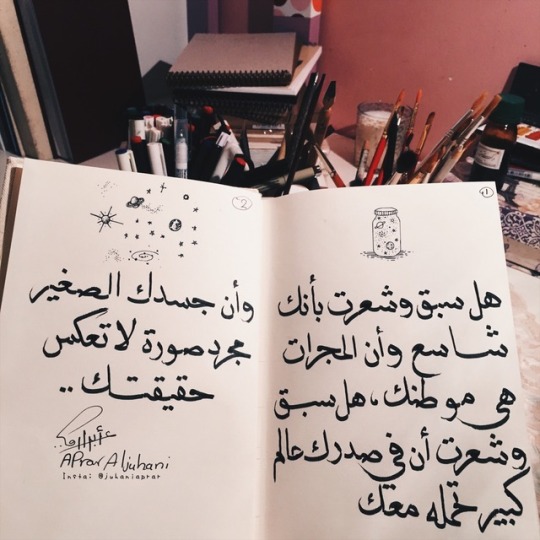 1
هل سبق وشعرت بأنك
شاسع وأن المجرات
هي موطنك، هل سبق
وشعرت أن في صدرك عالم
كبير تحمله معك
2
وأن جسدك الصغير
مجرد صورة لا تعكس
حقيقتك ..
APrar Aljuhani
Insta: @juhaniaprar